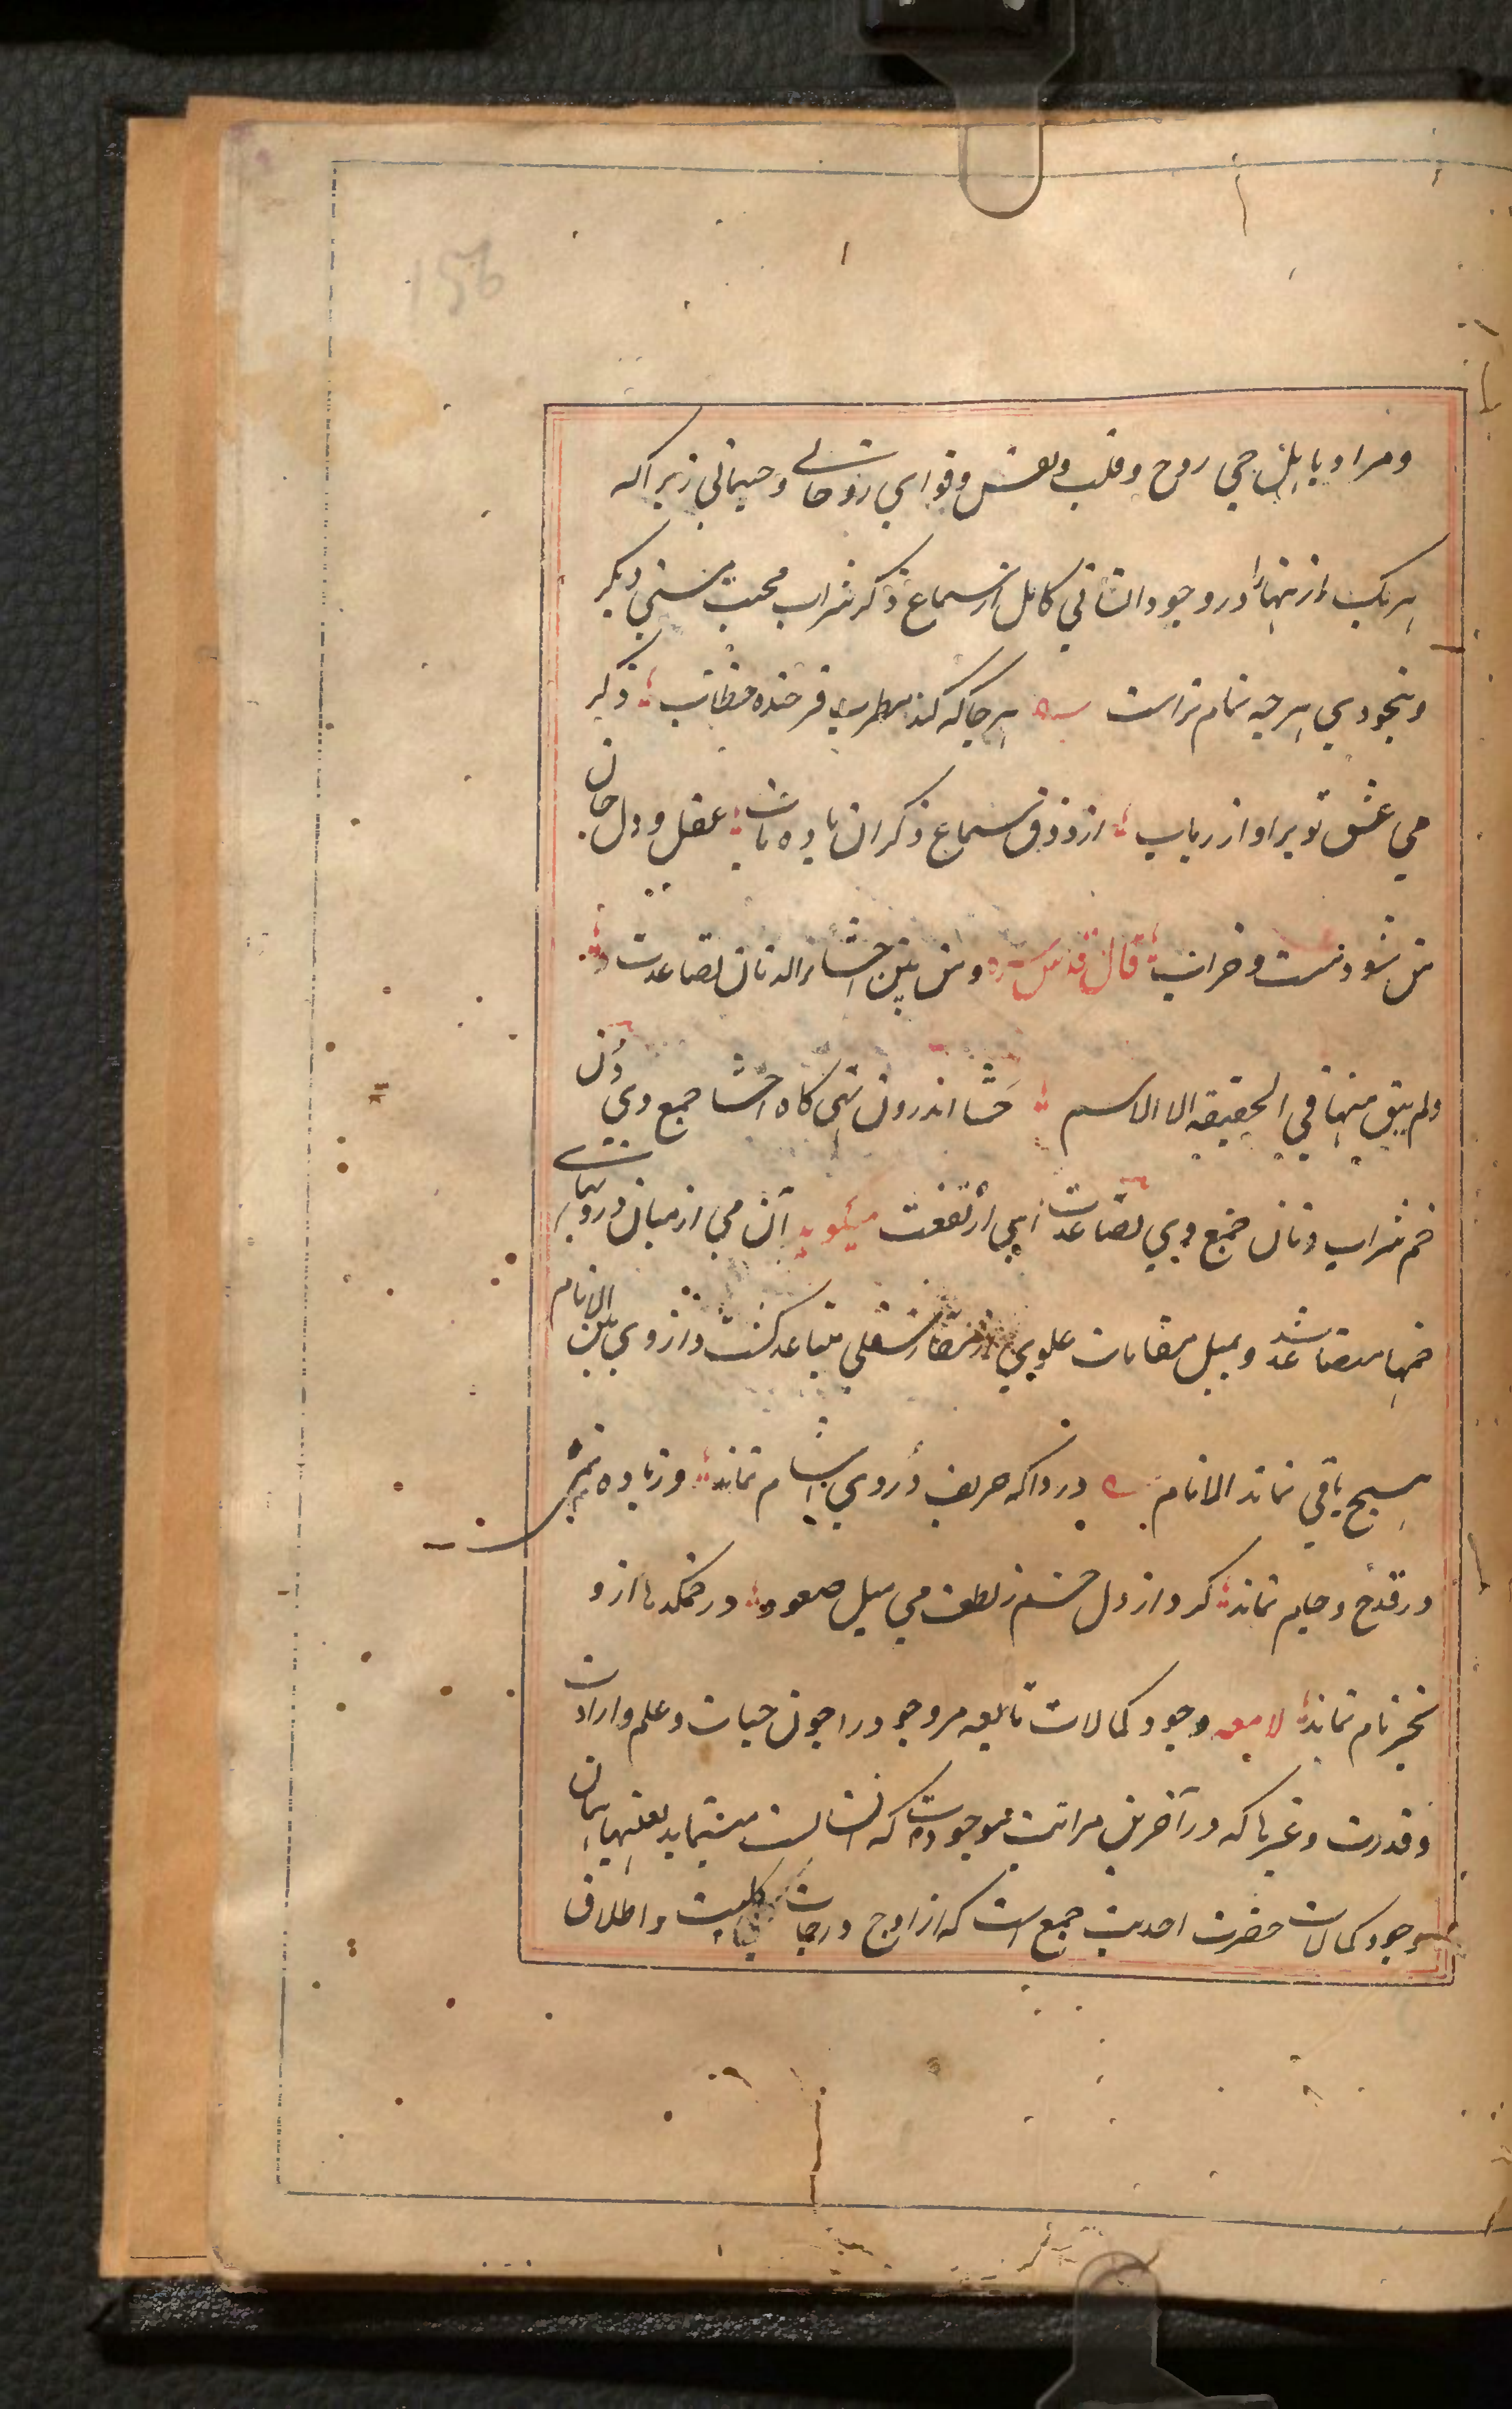 156
و مراد باهل حی روح و قلب و نفس و قوای روحانی و جسمانی زیرا که
هر یک از اینها را در وجود انسانی کامل از سماع ذکر شراب محبت مستی دیگر
و بیخودی هر چه تمام تر است هر جا که کند مطرب فرخنده خطاب ذکر
می عشق تو بر اواز رباب از ذوق سماع ذکر ان باده ناب عقل و دل جان
من شود مست و خراب قال قدس سره و من بین احشاء الدنان تصاعدت
و لم یبق منها فی الحقیقه الا الاسم حشا اندرون تهی کاه احشا جمع وی دن
خم شراب دنان جمع وی تصاعدت ای ارتفعت میگوید آن می از میان درونهای
خمها متصاعد شد و بمیل مقامات علوی از مقار سفلی متباعد گشت و از وی بین الانام
هیچ باقی نماند الا نام دردا که حریف دردی اشام نماند وز باده نمی
در قدح و جام نماند کرد از دل خم ز لطف می میل صعود در خمکدها ازو
بجز نام نماند لامعه وجود کمالات تابعه مر وجود را چون حیات و علم و ارادت
و قدرت و غیرها که در آخرین مراتب موجودات که انسانست مینماید بعینها همان
وجود کمالات حضرت احدیت جمع است که از اوج درجات کلیت و اطلاق